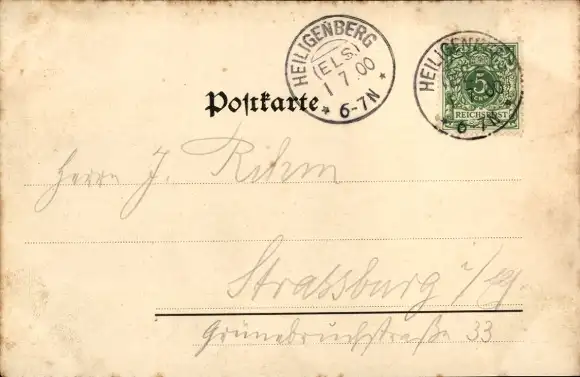 HEILIGENBERG
(ELS.)
1 7.00
* 6-7N *
HEILIGENBERG
6-7N
5
REICHSPOST
Postkarte
Herrn J. Rihm
Strassburg i/E.
Grünebruchstraße 33